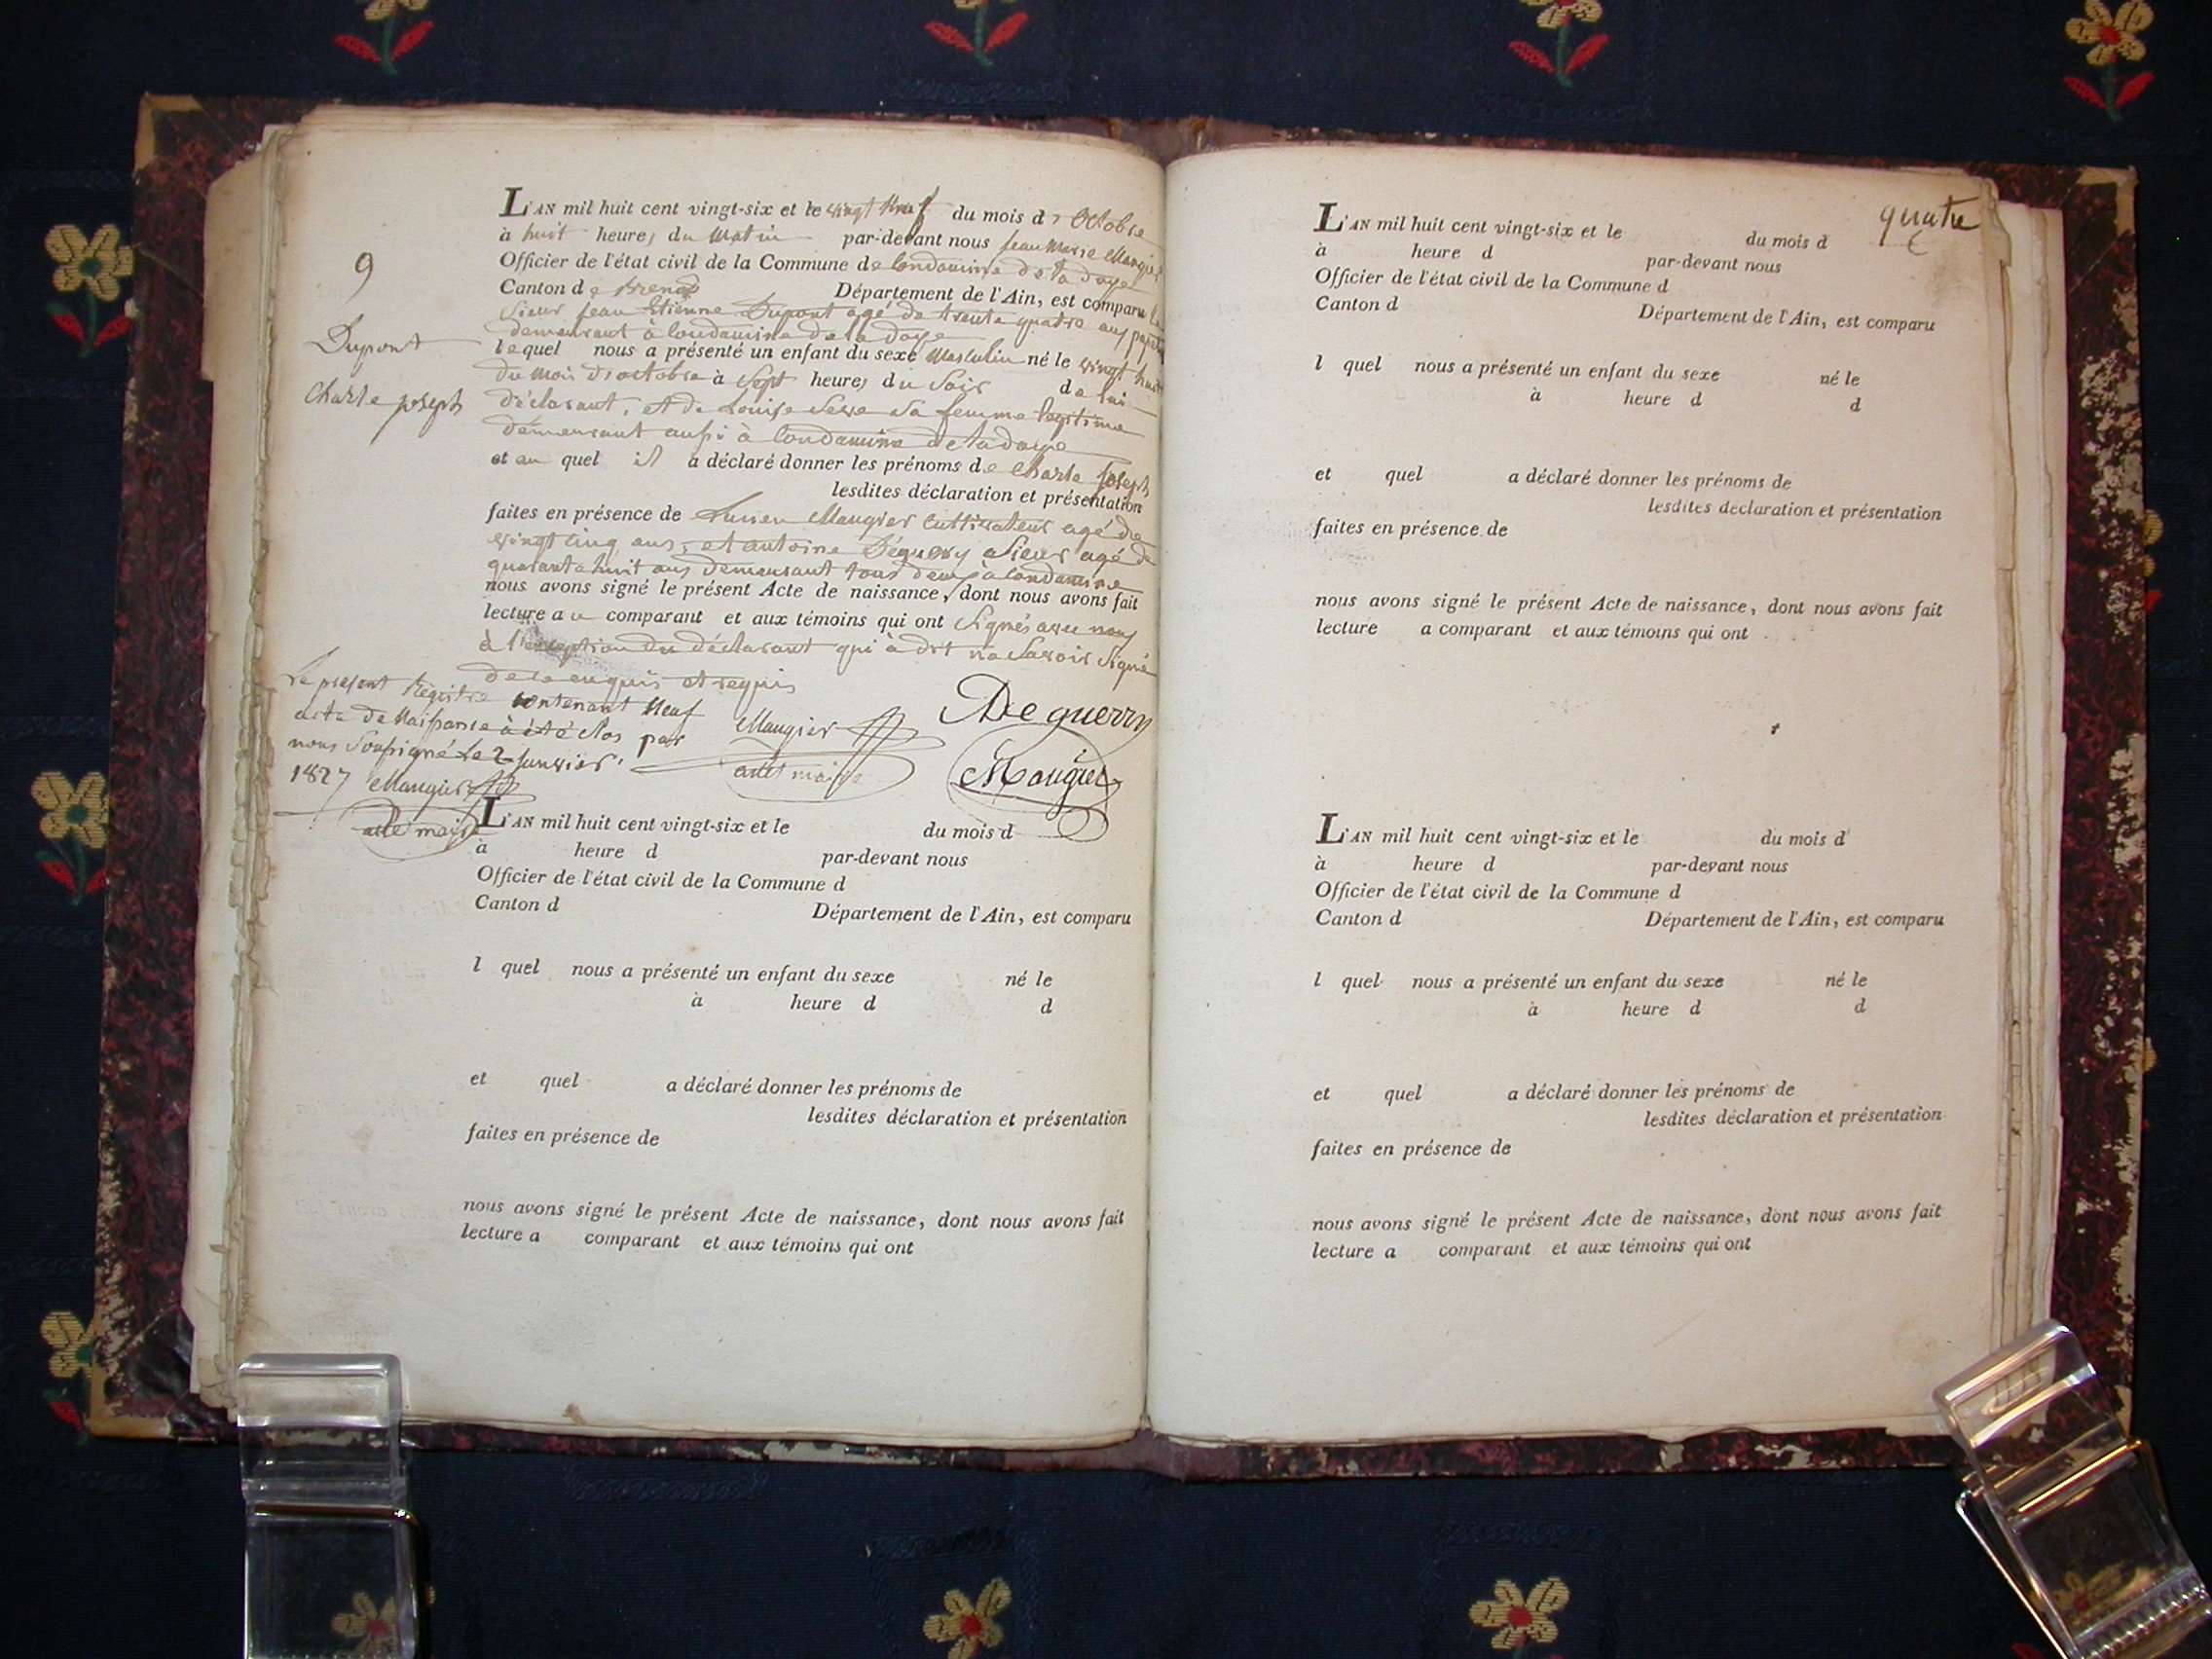 L'AN mil huit cent vingt-six et le vingt Neuf du mois d'Octobre
à huit heures du Matin par-devant nous Jean Marie Maugier
Officier de l'état civil de la Commune de Condamine de la doye
Canton de Brenod Département de l'Ain, est comparu le
Sieur Jean Etienne Dupont agé de trente quatre ans
demeurant à Condamine de la doye
lequel nous a présenté un enfant du sexe Masculin né le vingt huit
du Mois d'octobre à Sept heures du Soir de lui
déclarant, et de Louise sa femme legitime
demeurant aussi à Condamine de la doye
et au quel il a déclaré donner les prénoms de Charle Joseph
lesdites déclaration et présentation
faites en présence de Maugier Cultivateur agé de
vingt cinq ans, et antoine Déguerry agé de
quarante huit ans demeurant tous deux à Condamine
nous avons signé le présent Acte de naissance, dont nous avons fait
lecture au comparant et aux témoins qui ont Signés avec nous
à l'exception du déclarant qui à dit ne Savoir Signé
de ce enquis et requis
9
Dupont
Charle joseph
Le present Registre contenant Neuf
acte de Naissance à été Clos par
nous Soussigné Le 2 Janvier
1827 Maugier
maire
Maugier
maire
Deguerry
Maugier
L'AN mil huit cent vingt-six et le du mois d
à heure d par-devant nous
Officier de l'état civil de la Commune d
Canton d Département de l'Ain, est comparu
l quel nous a présenté un enfant du sexe né le
à heure d d
et quel a déclaré donner les prénoms de
lesdites déclaration et présentation
faites en présence de
nous avons signé le présent Acte de naissance, dont nous avons fait
lecture a comparant et aux témoins qui ont
quatre
L'AN mil huit cent vingt-six et le du mois d
à heure d par-devant nous
Officier de l'état civil de la Commune d
Canton d Département de l'Ain, est comparu
l quel nous a présenté un enfant du sexe né le
à heure d d
et quel a déclaré donner les prénoms de
lesdites déclaration et présentation
faites en présence de
nous avons signé le présent Acte de naissance, dont nous avons fait
lecture a comparant et aux témoins qui ont
L'AN mil huit cent vingt-six et le du mois d
à heure d par-devant nous
Officier de l'état civil de la Commune d
Canton d Département de l'Ain, est comparu
l quel nous a présenté un enfant du sexe né le
à heure d d
et quel a déclaré donner les prénoms de
lesdites déclaration et présentation
faites en présence de
nous avons signé le présent Acte de naissance, dont nous avons fait
lecture a comparant et aux témoins qui ont